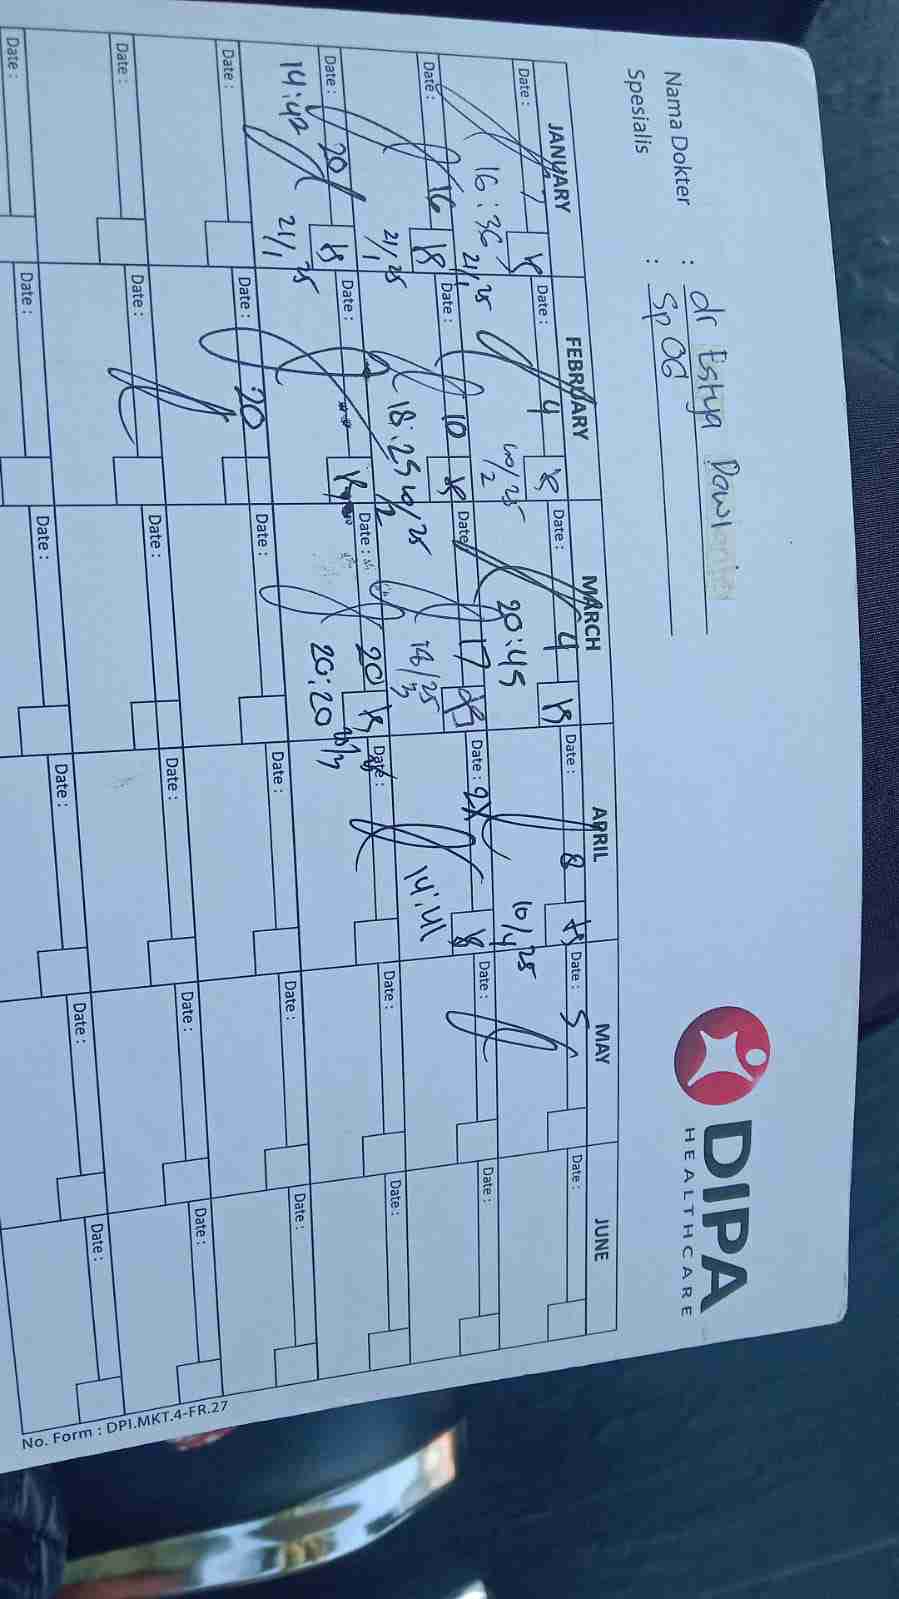 DIPA
HEALTHCARE
Nama Dokter : dr Estya
Spesialis : Sp OG
JANUARY FEBRUARY MARCH APRIL MAY JUNE
Date : 7 Date : 4 Date : 4 Date : 8 Date : 5 Date :
16:36 20:45 10/4 25
21/1 25
Date : 16 Date : 10 Date : 17 Date : 2x Date : Date :
21/1 25 18:25 18/25 14:41
Date : 20 Date : Date : 20 Date : Date : Date :
14:42 21/1 25 20:20
Date : Date : 20 Date : Date : Date : Date :
Date : Date : Date : Date : Date : Date :
Date : Date : Date : Date : Date : Date :
No. Form : DPI.MKT.4-FR.27